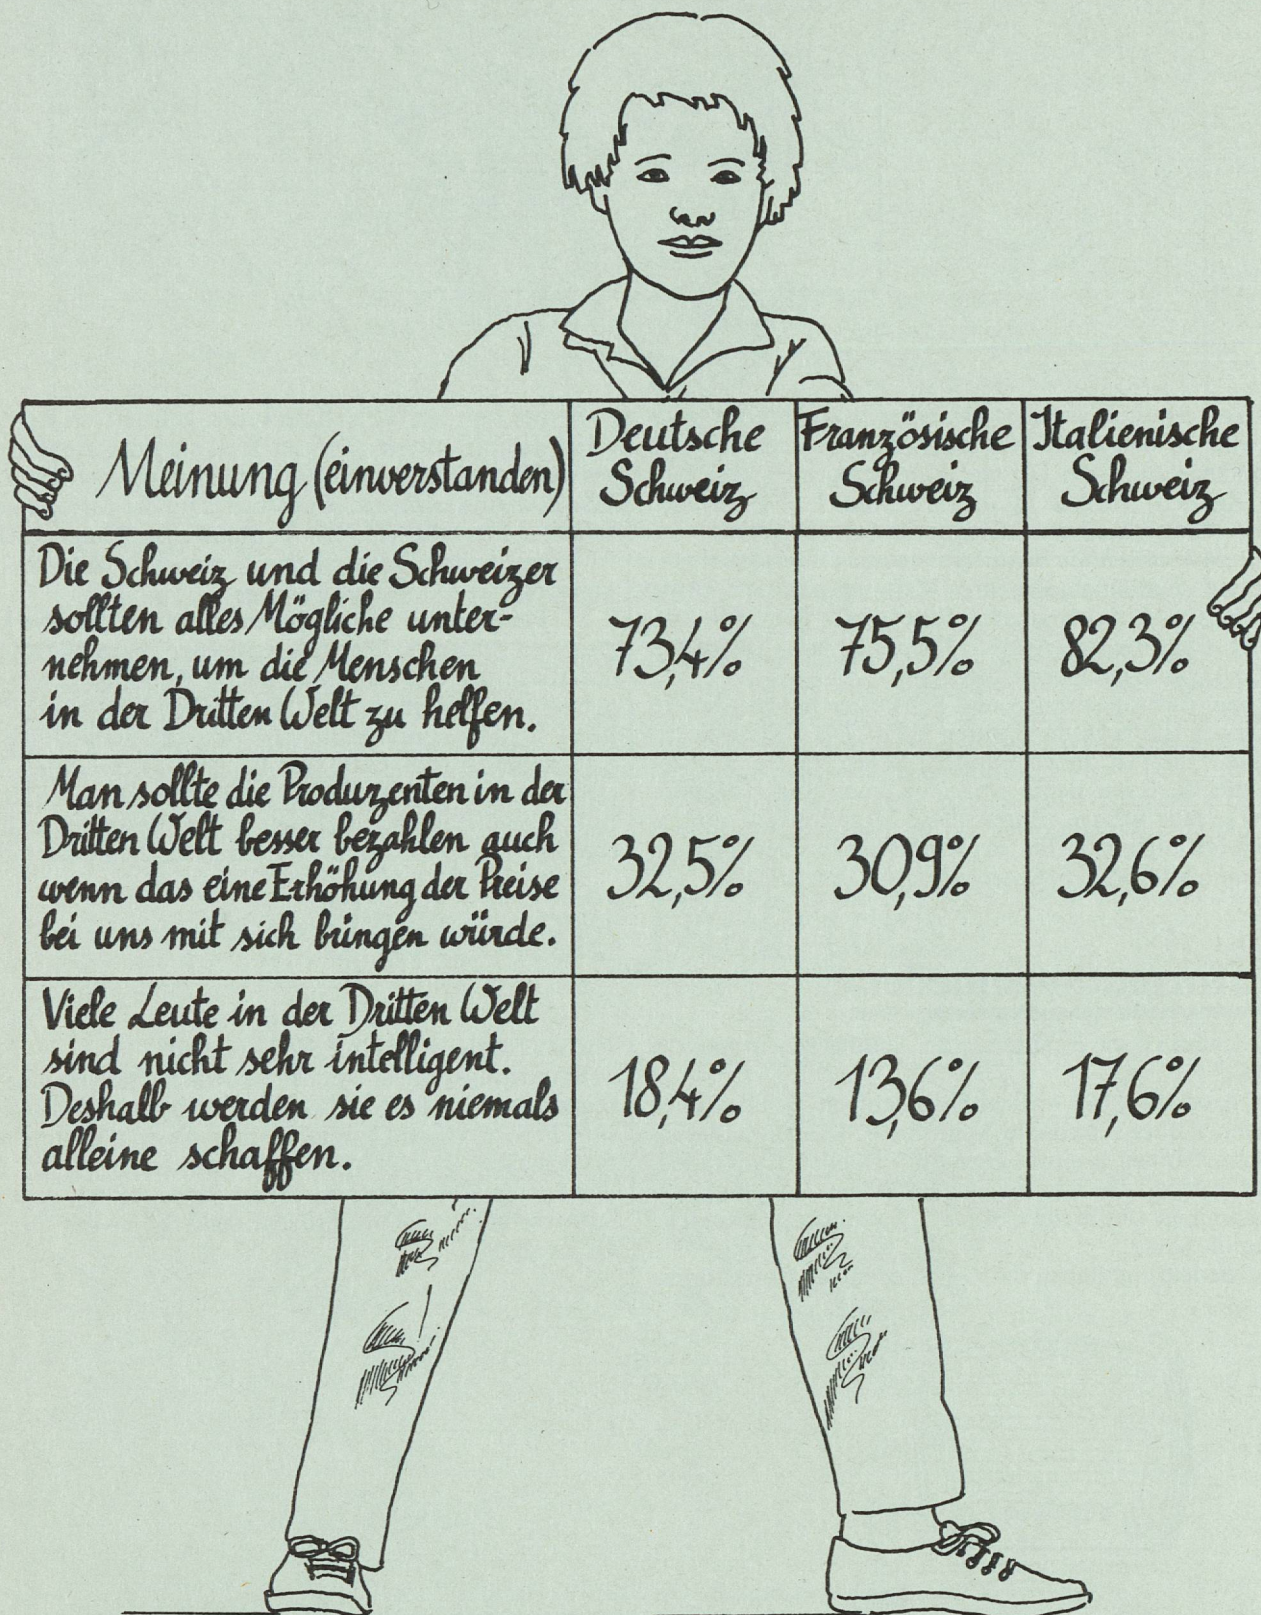 Meinung (einverstanden)
Deutsche
Schweiz
Französische
Schweiz
Italienische
Schweiz
Die Schweiz und die Schweizer
sollten alles Mögliche unter-
nehmen, um die Menschen
in der Dritten Welt zu helfen.
73,4%
75,5%
82,3%
Man sollte die Produzenten in der
Dritten Welt besser bezahlen auch
wenn das eine Erhöhung der Preise
bei uns mit sich bringen würde.
32,5%
30,9%
32,6%
Viele Leute in der Dritten Welt
sind nicht sehr intelligent.
Deshalb werden sie es niemals
alleine schaffen.
18,4%
13,6%
17,6%